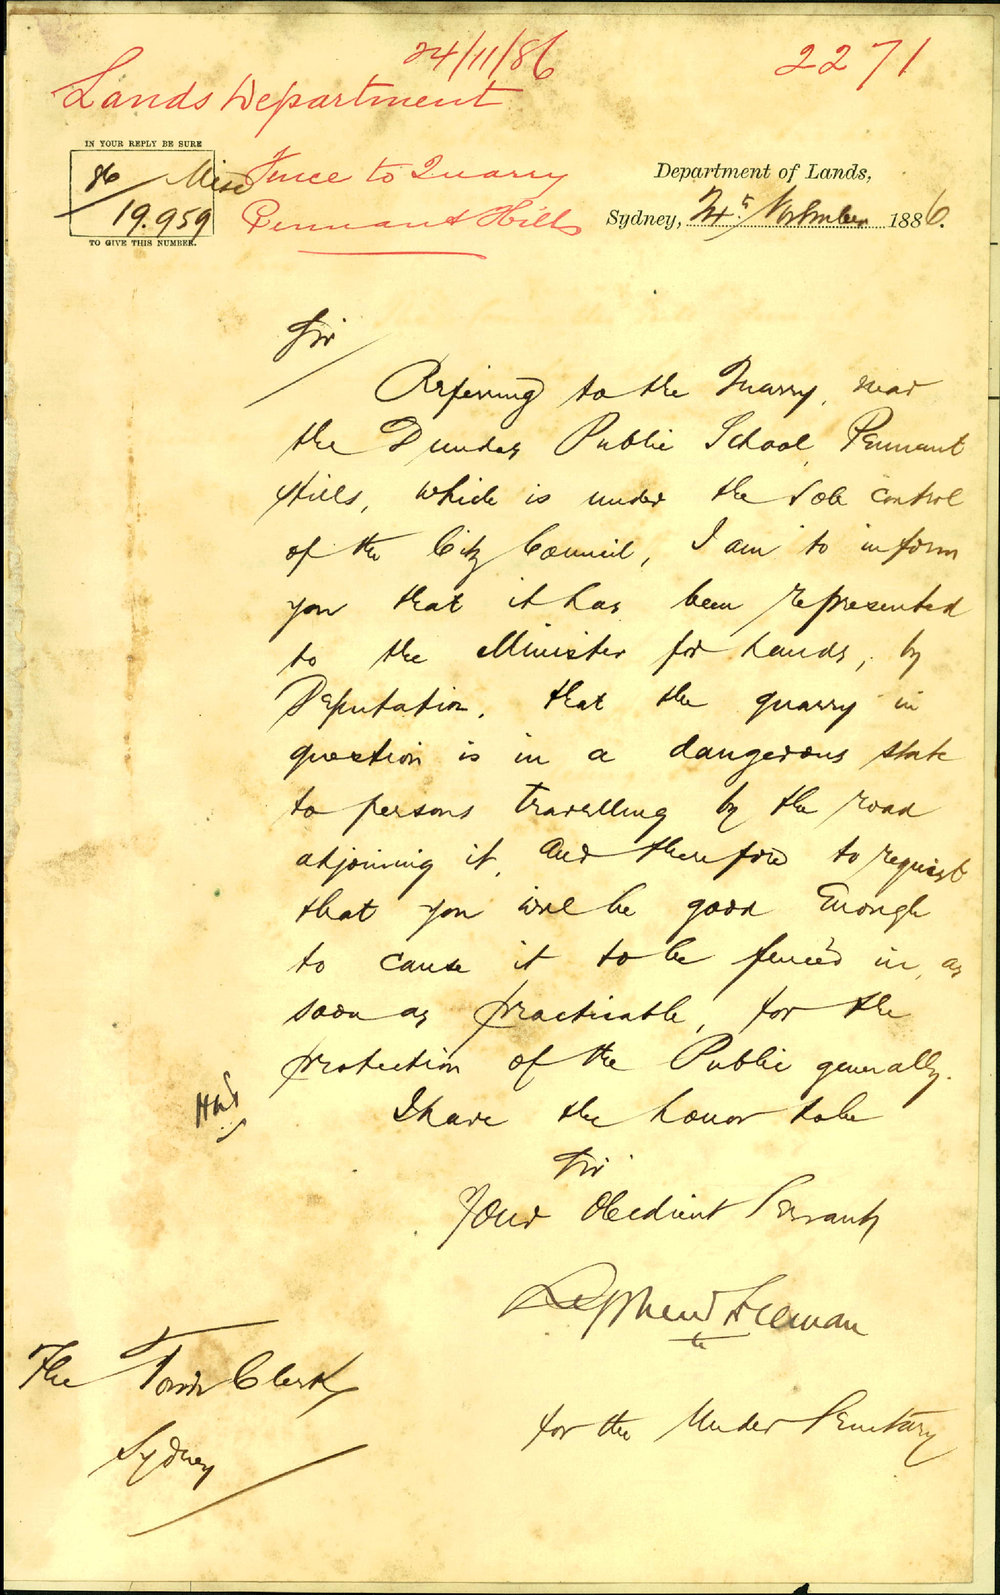 24/11/86
2271
Lands Department
IN YOUR REPLY BE SURE
86 Misc
19.959
TO GIVE THIS NUMBER.
Fence to Quarry
Pennant Hills
Department of Lands,
Sydney, 24th November 1886.
Sir
Referring to the Quarry, near
the Dundas Public School, Pennant
Hills, which is under the sole control
of the City Council, I am to inform
you that it has been represented
to the Minister for Lands, by
Deputation, that the quarry in
question is in a dangerous state
to persons travelling by the road
adjoining it, and therefore to request
that you will be good enough
to cause it to be fenced in, as
soon as practicable, for the
protection of the Public generally.
I have the honor to be
Sir
Your Obedient Servant
Stephen Freeman
for the Under Secretary
The Town Clerk
Sydney